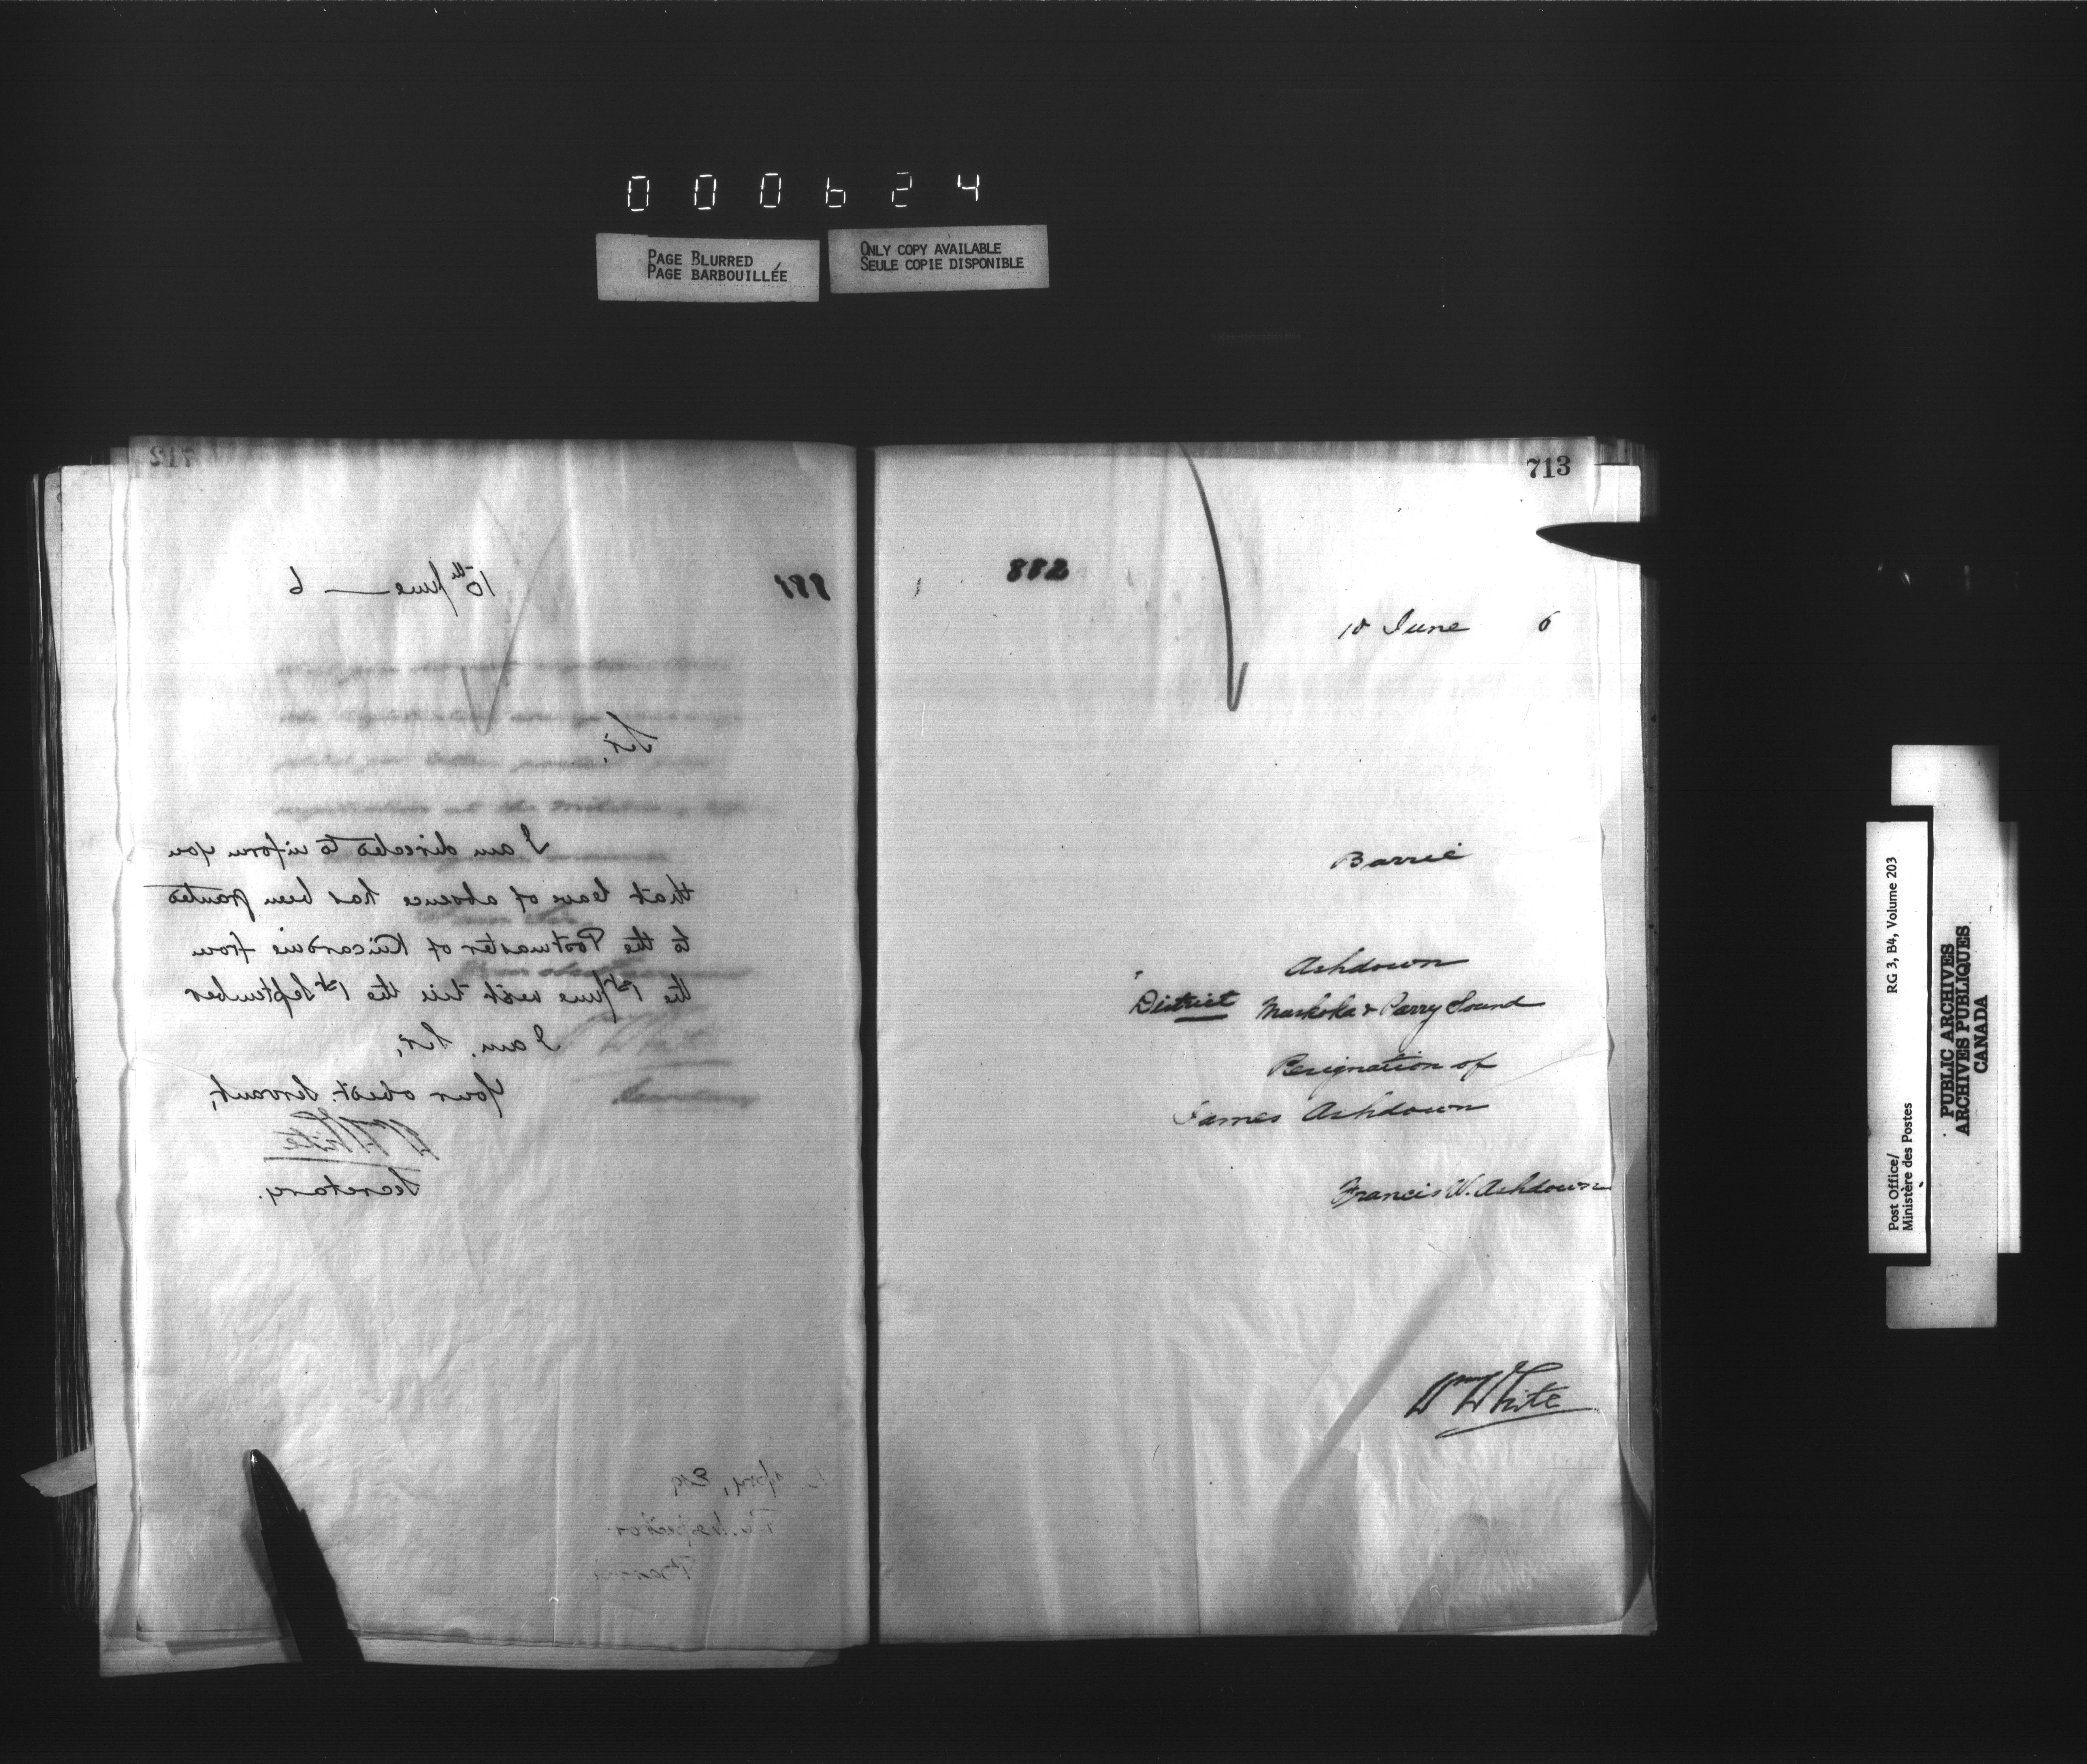 000624
PAGE BLURRED
PAGE BARBOUILLÉE
ONLY COPY AVAILABLE
SEULE COPIE DISPONIBLE
712
881
10th June — 6
Sir,
I am directed to inform you
that leave of absence has been granted
to the Postmaster of Kincardine from
the 1st June next till the 1st September
I am, Sir,
Your obedt. Servant,
Wm White
Secretary.
Esq
P.O. Inspector
Barrie
713
882
10 June 6
Barrie
Ashdown
District Muskoka & Parry Sound
Resignation of
James Ashdown
Francis W. Ashdown
Wm White
Post Office/
Ministère des Postes
RG 3, B4, Volume 203
PUBLIC ARCHIVES
ARCHIVES PUBLIQUES
CANADA